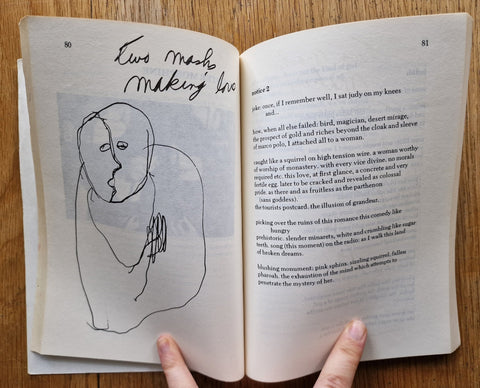 80
Two masks
making love
81
notice 2
joke: once, if I remember well, I sat judy on my knees
and...
how, when all else failed: bird, magician, desert mirage,
the prospect of gold and riches beyond the cloak and sleeve
of marco polo, I attached all to a woman.
caught like a squirrel on high tension wire. a woman worthy
of worship of monastery. with every vice divine. no morals
required etc. this love, at first glance, a concrete and very
fertile egg. later to be cracked and revealed as colossal
pride, as there and as fruitless as the parthenon
(sans goddess).
the tourists postcard. the illusion of grandeur.
picking over the ruins of this romance this comedy like
hungry
prehistoric. slender minarets, white and crumbling like sugar
teeth. song (this moment) on the radio: as I walk this land
of broken dreams.
blushing monument; pink sphinx. sizzling squirrel, fallen
pharoah. the exhaustion of the mind which attempts to
penetrate the mystery of her.